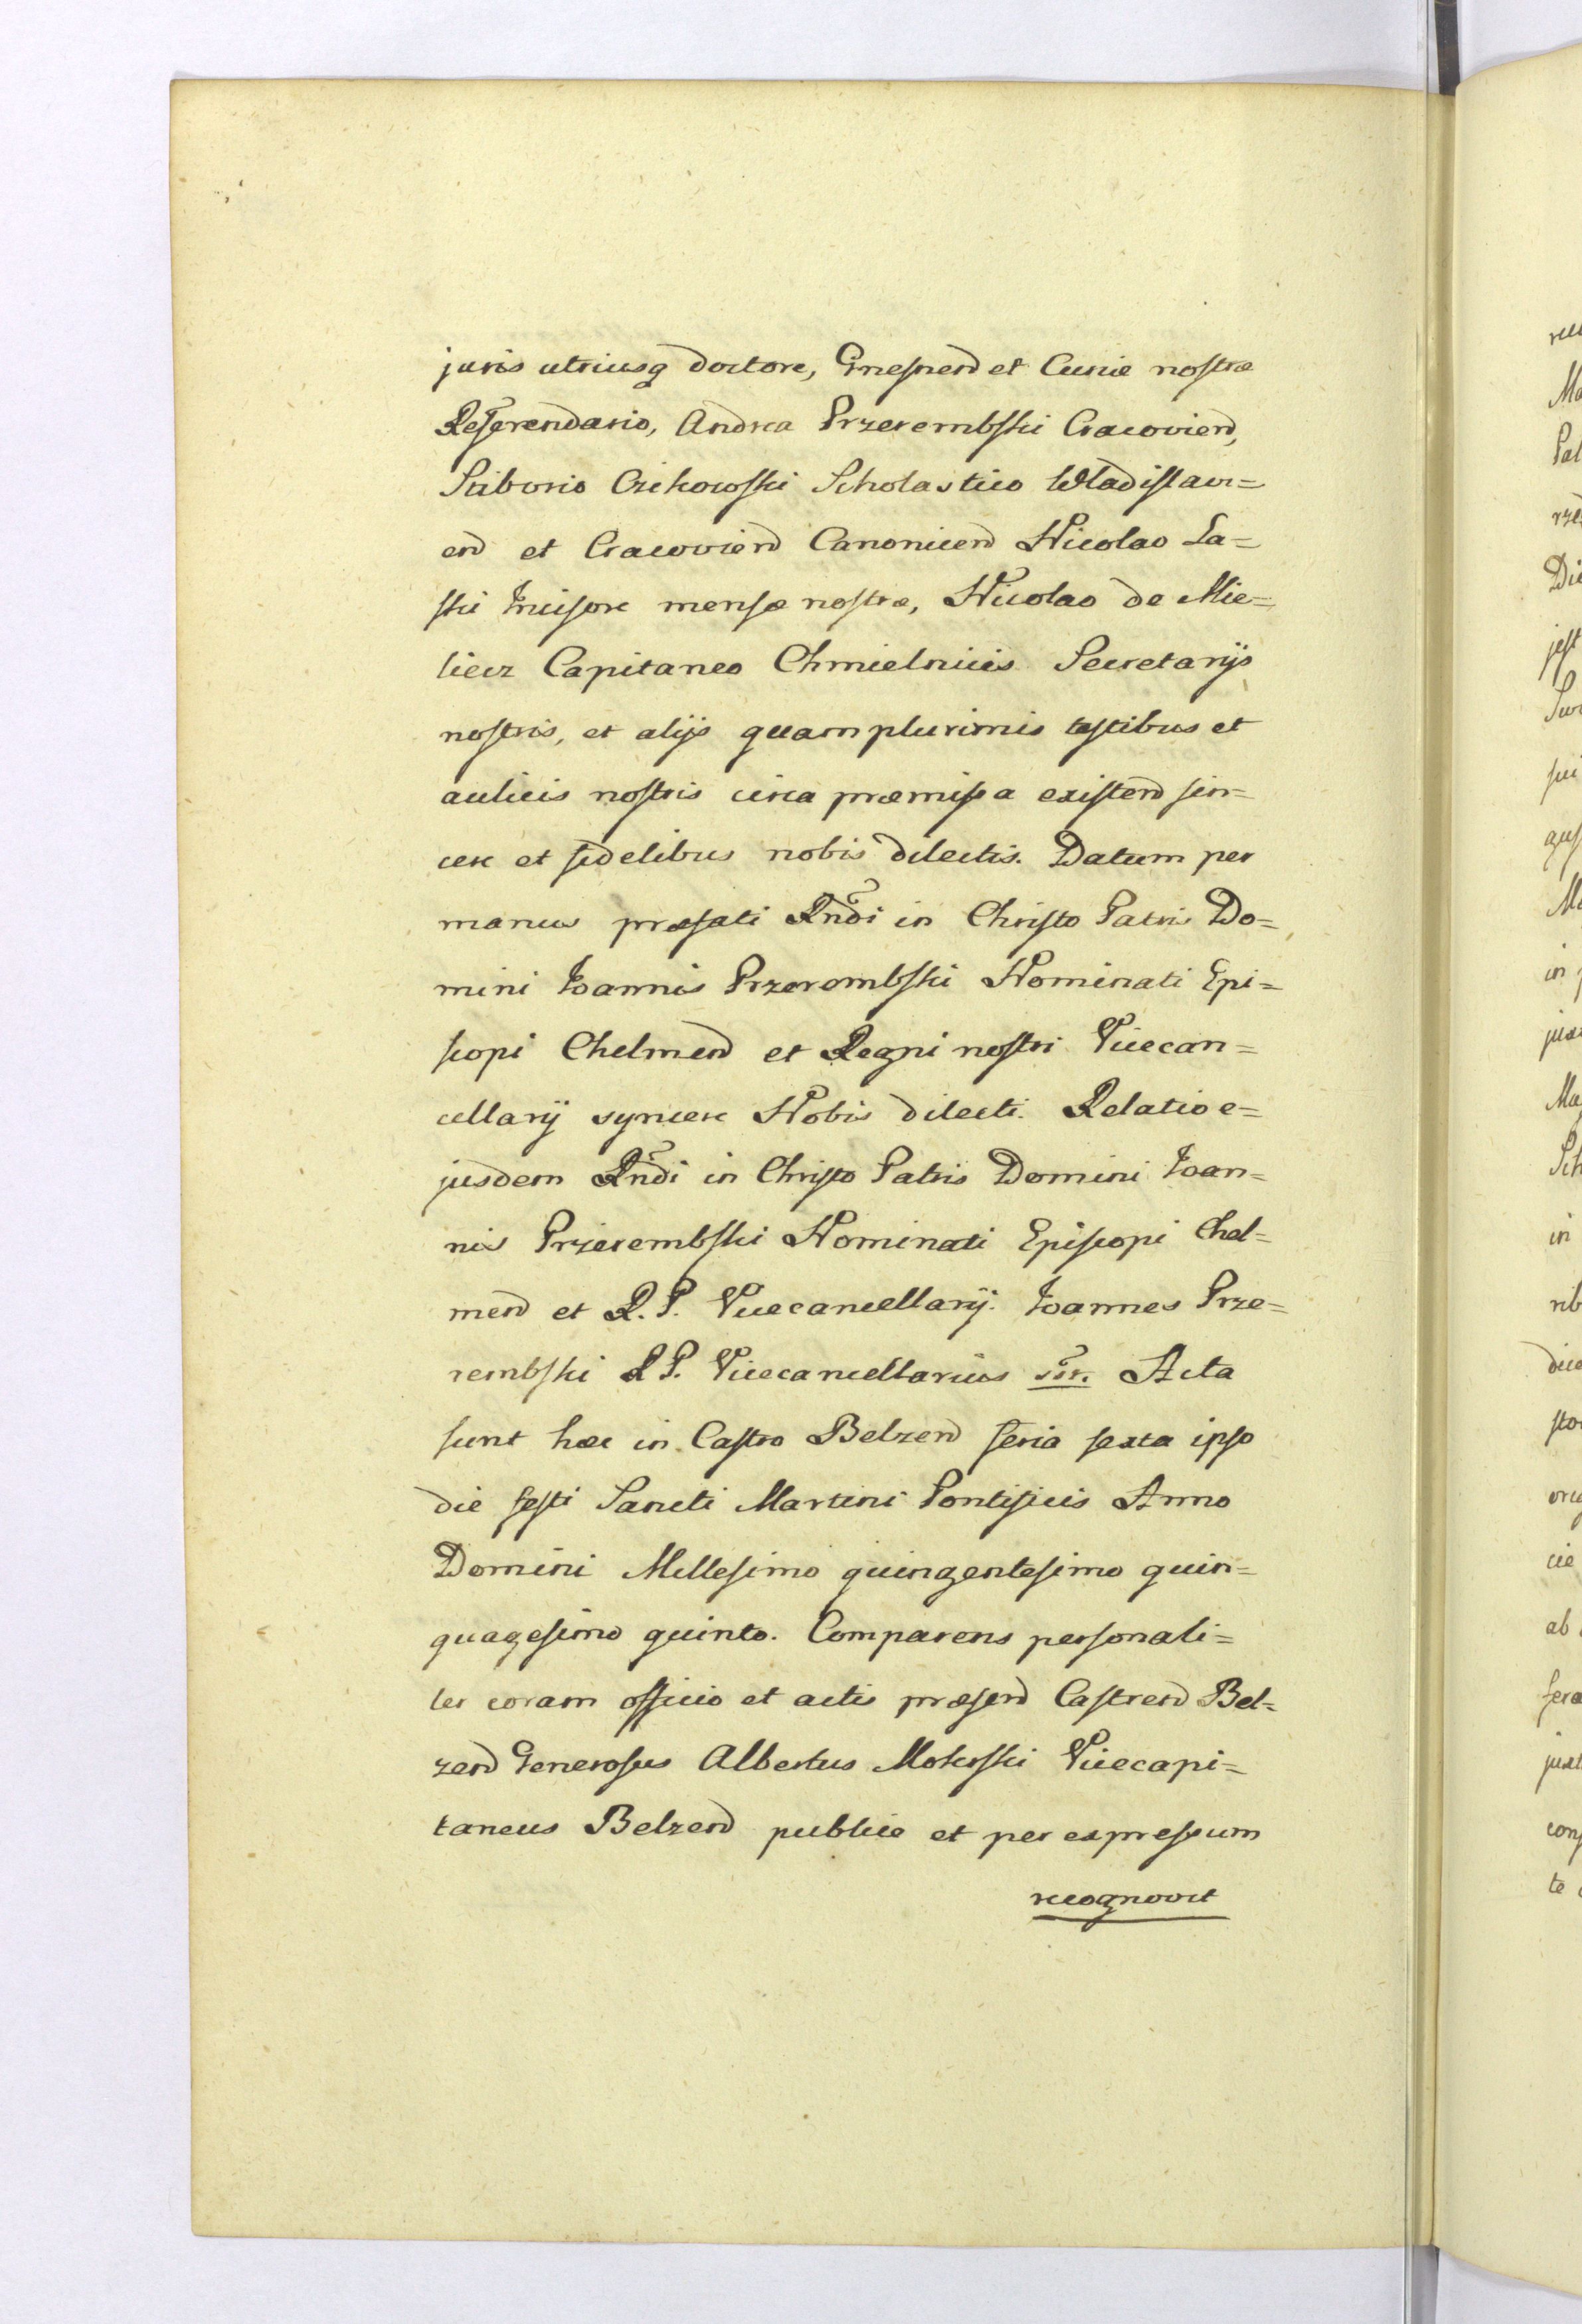 juris utriusq doctore, Gnesnen et Curiæ nostræ
Referendario, Andrea Przerembski Cracovien,
Stiborio Czikowski Scholastico Wladislavi=
en et Cracovien Canonicen Nicolao La=
ski Incisore mensæ nostræ, Nicolao de Mie=
liecz Capitaneo Chmielnicis Secretarÿs
nostris, et alÿs quam plurimis testibus et
aulicis nostris circa præmissa existen sin=
cere et fidelibus nobis dilectis. Datum per
manus præfati Rndi in Christo Patris Do=
mini Joannis Przerembski Nominati Epi=
scopi Chelmen et Regni nostri Vicecan=
cellarÿ syncere Nobis dilecti. Relatio e=
jusdem Rndi in Christo Patris Domini Joan=
nis Przerembski Nominati Episcopi Chel=
men et R. P. Vicecancellarÿ. Joannes Prze=
rembski R P. Vicecancellarius sst. Acta
sunt hæc in Castro Belzen feria sexta ipso
die festi Sancti Martini Pontificis Anno
Domini Millesimo quingentesimo quin=
quagesimo quinto. Comparens personali=
ter coram officio et actis præsen Castren Bel=
zen Generosus Albertus Mokrski Vicecapi=
taneus Belzen publice et per expressum
recognovit